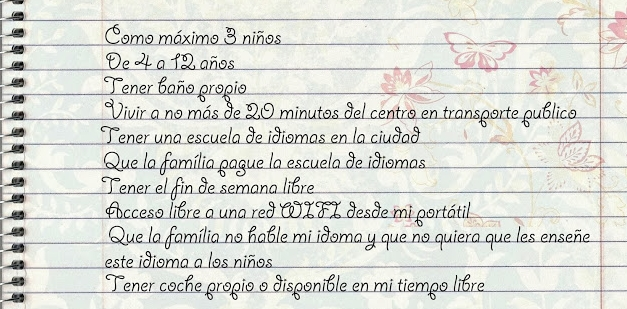 Como máximo 3 niños
De 4 a 12 años
Tener baño propio
Vivir a no más de 20 minutos del centro en transporte publico
Tener una escuela de idiomas en la ciudad
Que la família pague la escuela de idiomas
Tener el fin de semana libre
Acceso libre a una red WIFI desde mi portátil
Que la família no hable mi idoma y que no quiera que les enseñe
este idioma a los niños
Tener coche propio o disponible en mi tiempo libre